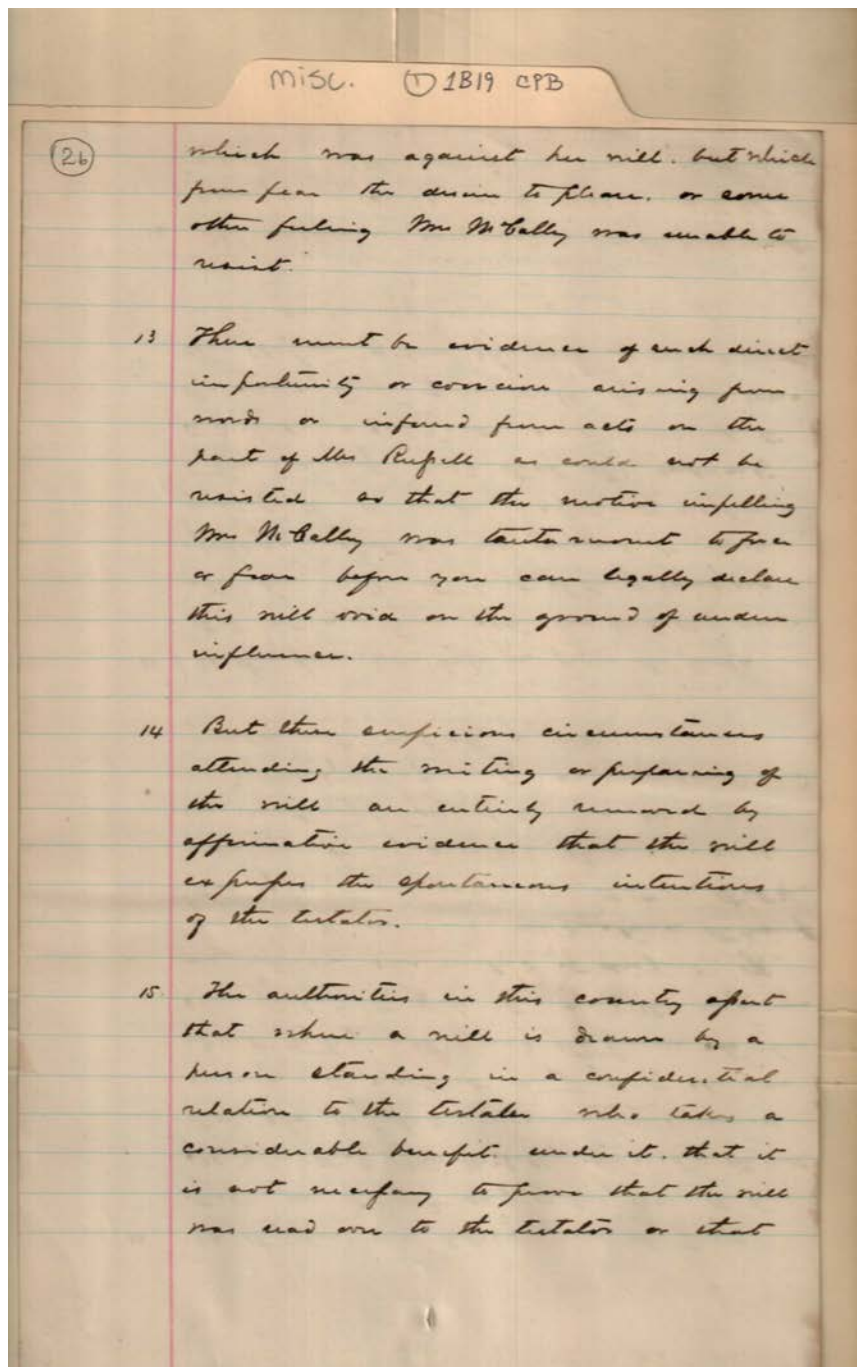 misc. ① 1B19 CPB
26
which was against her will. but which
from fear the desire to please. or some
other feeling Mrs McCally was unable to
resist.
13 There must be evidence of such direct
importunity or coercion arising from
words or infered from acts on the
part of Mrs Russell as could not be
resisted so that the motive impelling
Mrs McCally was tantamount to force
or fear before you can legally declare
this will void on the ground of undue
influence.
14 But these suspicious circumstances
attending the writing or preparing of
the will are entirely removed by
affirmative evidence that the will
expresses the spontaneous intentions
of the testator.
15 The authorities in this country assert
that where a will is drawn by a
person standing in a confidential
relation to the testator who takes a
considerable benefit. under it. that it
is not necessary to prove that the will
was read over to the testator or that